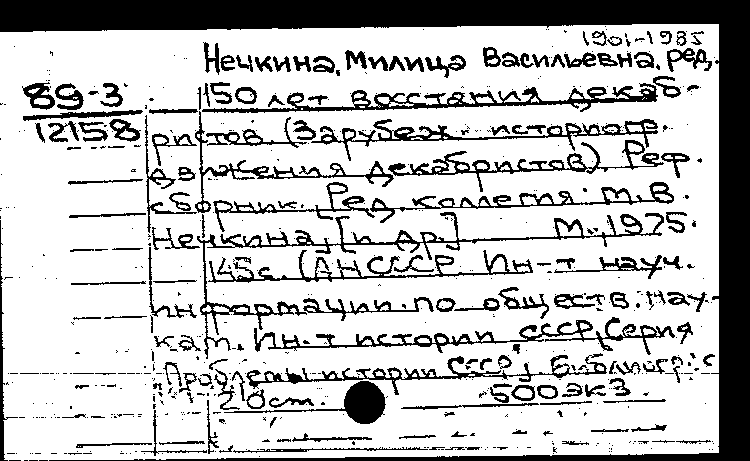 1901-1985
Нечкина, Милица Васильевна, ред.
89-3
12158
150 лет восстания декаб-
ристов. (Зарубеж. историогр.
движения декабристов). Реф.
сборник. [Ред. коллегия: М.В.
Нечкина, [и др.] М., 1975.
145с. (АН СССР. Ин-т науч.
информации по обществ. нау-
кам. Ин-т истории СССР. Серия
Проблемы истории СССР) Библиогр.: с
500 экз.